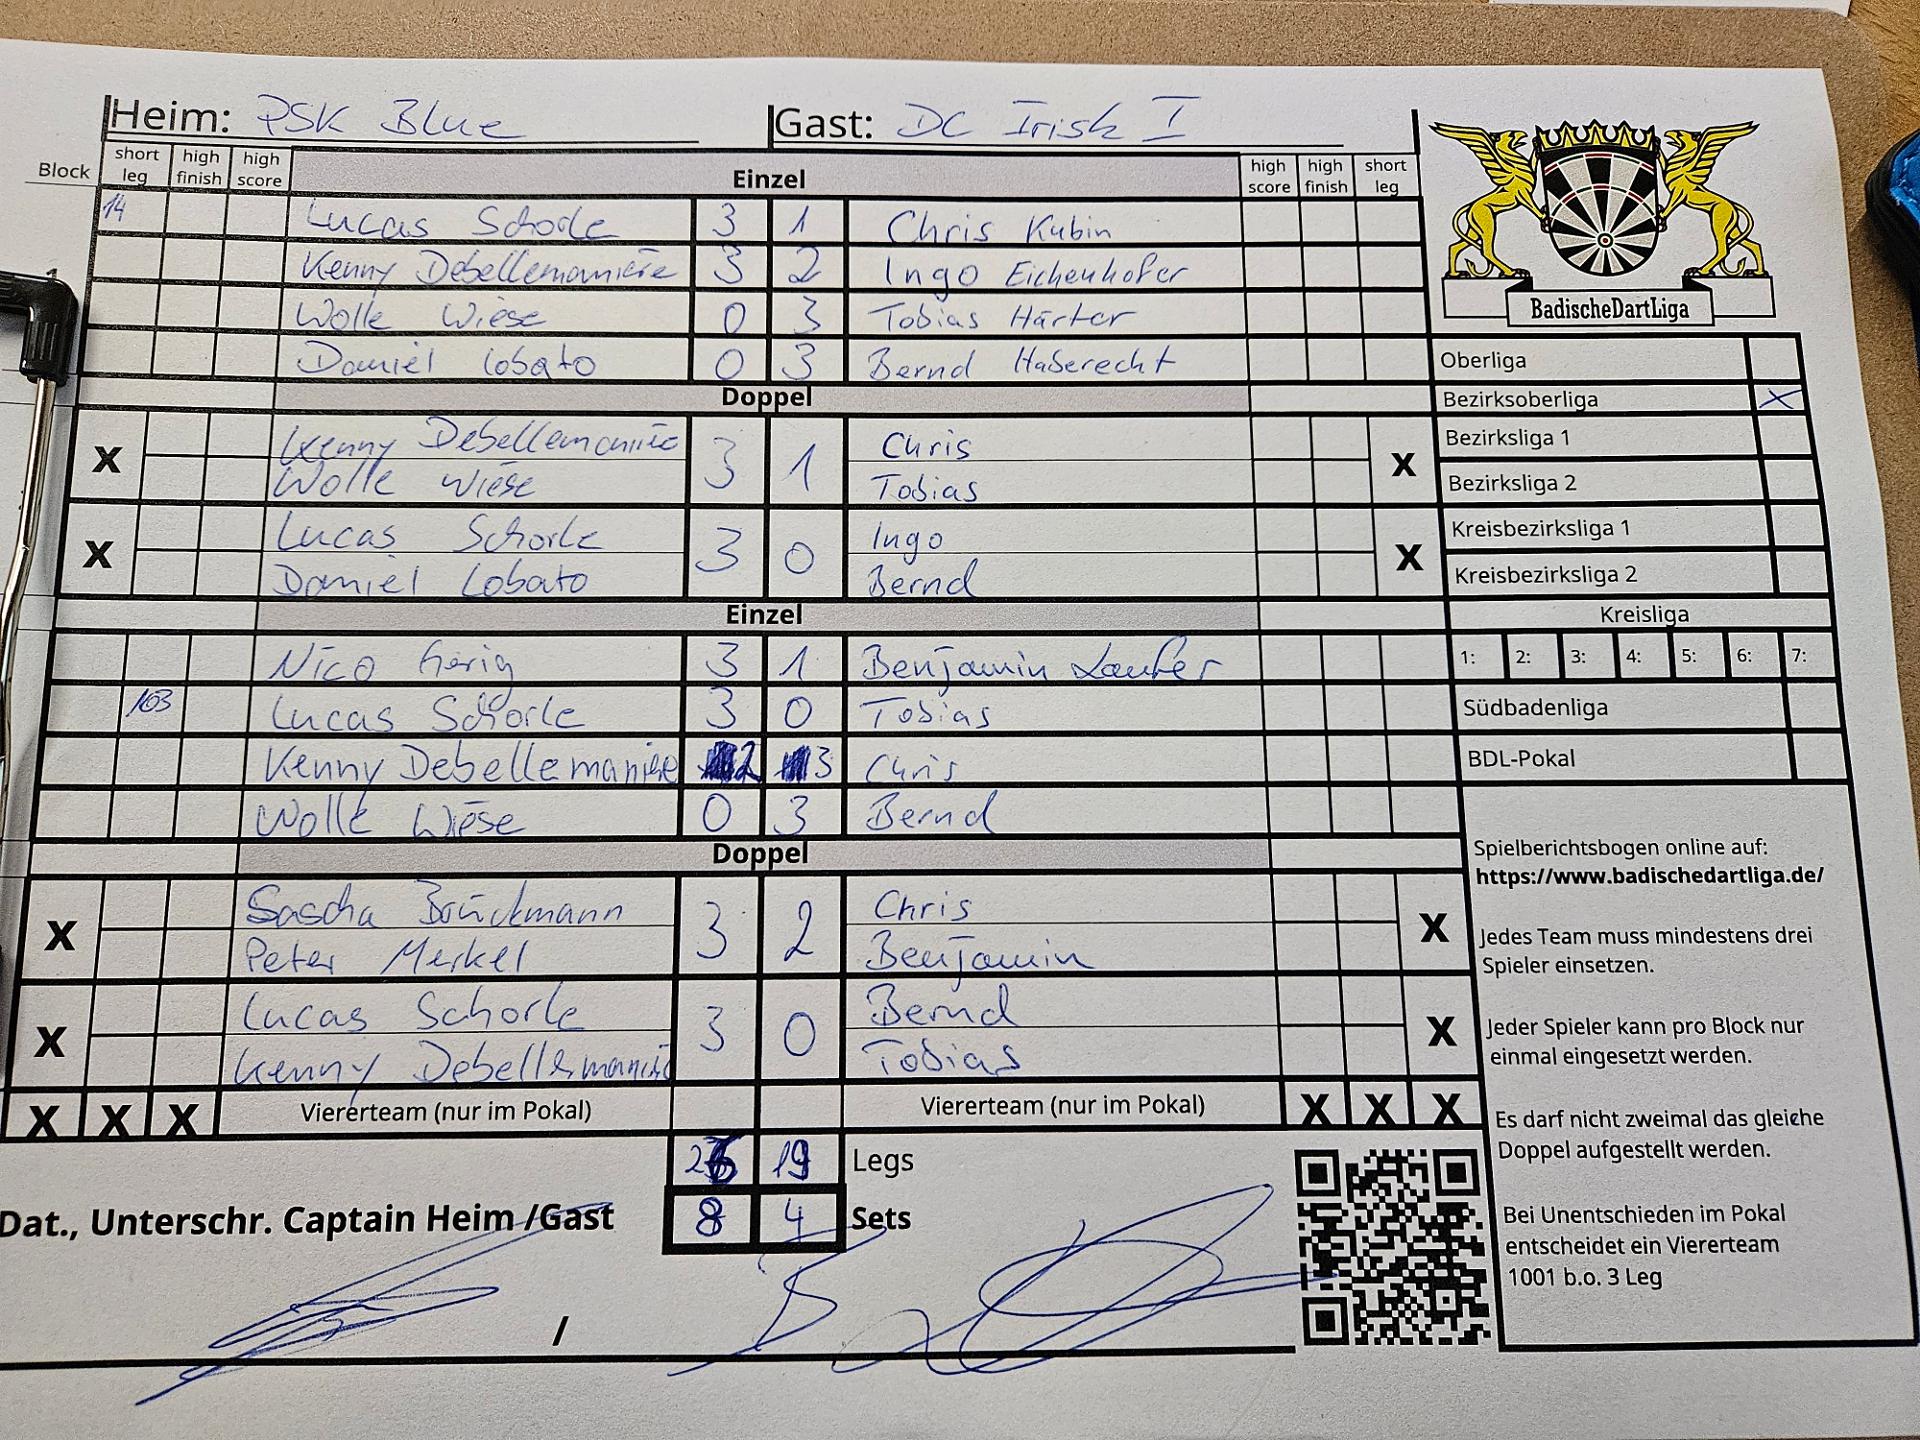 Heim: PSK Blue Gast: DC Irish I
Block short leg high finish high score Einzel high score high finish short leg
14 Lucas Schorle 3 1 Chris Kubin
Kenny Debellemanière 3 2 Ingo Eichenhofer
Wolle Wiese 0 3 Tobias Härter
Daniel Lobato 0 3 Bernd Haberecht
BadischeDartLiga
Oberliga
Doppel
Bezirksoberliga X
X Kenny Debellemanière 3 1 Chris X
Wolle Wiese Tobias
Bezirksliga 1
Bezirksliga 2
X Lucas Schorle 3 0 Ingo X
Daniel Lobato Bernd
Kreisbezirksliga 1
Kreisbezirksliga 2
Einzel
Kreisliga
Nico Gerig 3 1 Benjamin Laufer
1: 2: 3: 4: 5: 6: 7:
103 Lucas Schorle 3 0 Tobias
Südbadenliga
Kenny Debellemanière 2 3 Chris
BDL-Pokal
Wolle Wiese 0 3 Bernd
Doppel
X Sascha Brückmann 3 2 Chris X
Peter Merkel Benjamin
X Lucas Schorle 3 0 Bernd X
Kenny Debellemanière Tobias
X X X Viererteam (nur im Pokal) Viererteam (nur im Pokal) X X X
19 Legs
8 4 Sets
Dat., Unterschr. Captain Heim /Gast
/
Spielberichtsbogen online auf:
https://www.badischedartliga.de/
Jedes Team muss mindestens drei
Spieler einsetzen.
Jeder Spieler kann pro Block nur
einmal eingesetzt werden.
Es darf nicht zweimal das gleiche
Doppel aufgestellt werden.
Bei Unentschieden im Pokal
entscheidet ein Viererteam
1001 b.o. 3 Leg